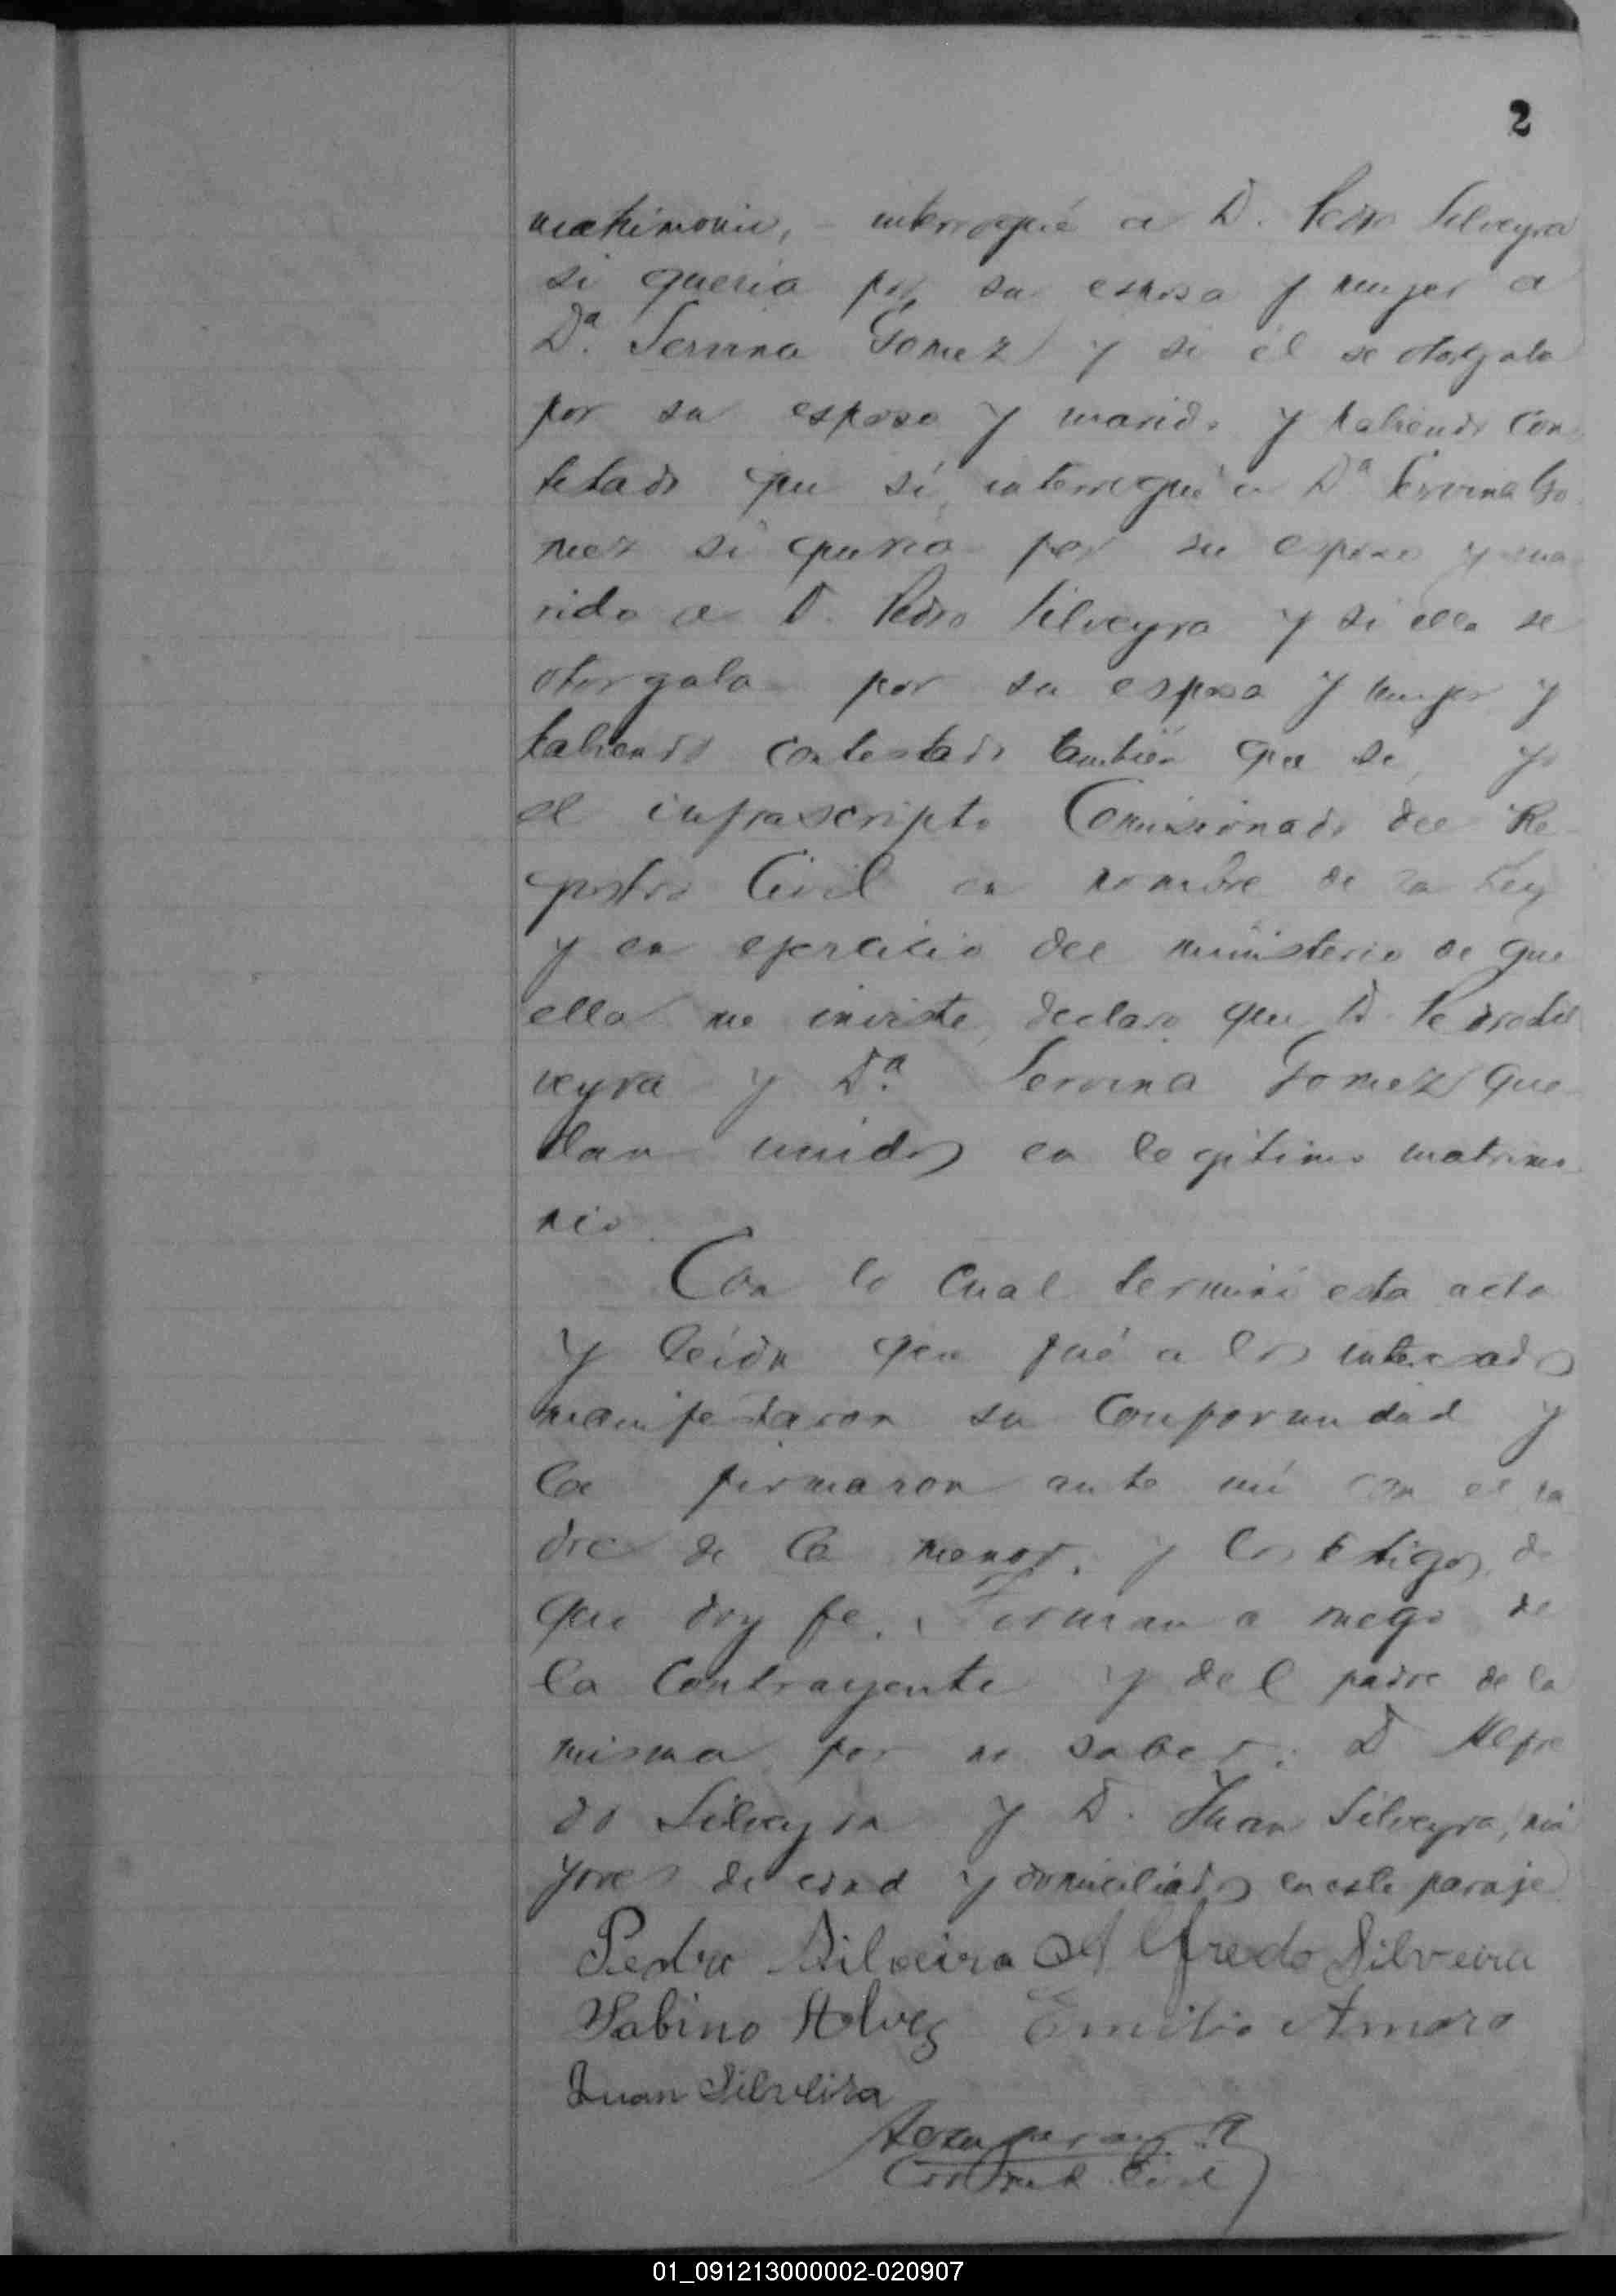 2
matrimonio, interrogué a D. Pedro Silveyra
si queria por su esposa y mujer a
Dª. Servina Gomez y si él se otorgala
por su esposo y marido y habiendo con
tetado que sí, interrogué a Dª Servina Go
mez si queria por su esposo y ma
rido a D. Pedro Silveyra y si ella se
otorgala por su esposa y mujer y
habiendo contestado también que si, yo
el infrascripto Comisionado del Re
gistro Civil en nombre de la Ley
y en ejercicio del ministerio de que
ella me inviste, declaro que D. Pedro Sil
veyra y Dª. Servina Gomez que
dan unidos en legitimo matrimo
nio.
Con lo cual terminé esta acta
y leida que fué a los interesados
manifestaron su conformidad y
la firmaron ante mi con el pa
dre de la menor. y los testigos, de
que doy fe. Firman a ruego de
la contrayente y del padre de la
misma por no saber: D Alfre
do Silveyra y D. Juan Silveyra, ma
yores de edad y domiciliados en este paraje
Pedro Silveira Alfredo Silveira
Sabino Alvez Emilio Amaro
Juan Silveira
Civil
01_091213000002-020907